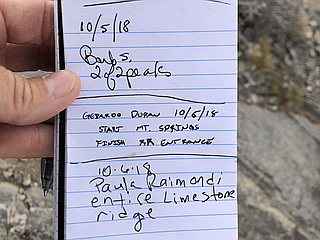 10/5/18
Barb S.
2 of 2 peaks
GERARDO DURAN 10/5/18
START MT. SPRINGS
FINISH RR ENTRANCE
10.6.18
Paula Raimondi
entire Limestone
ridge